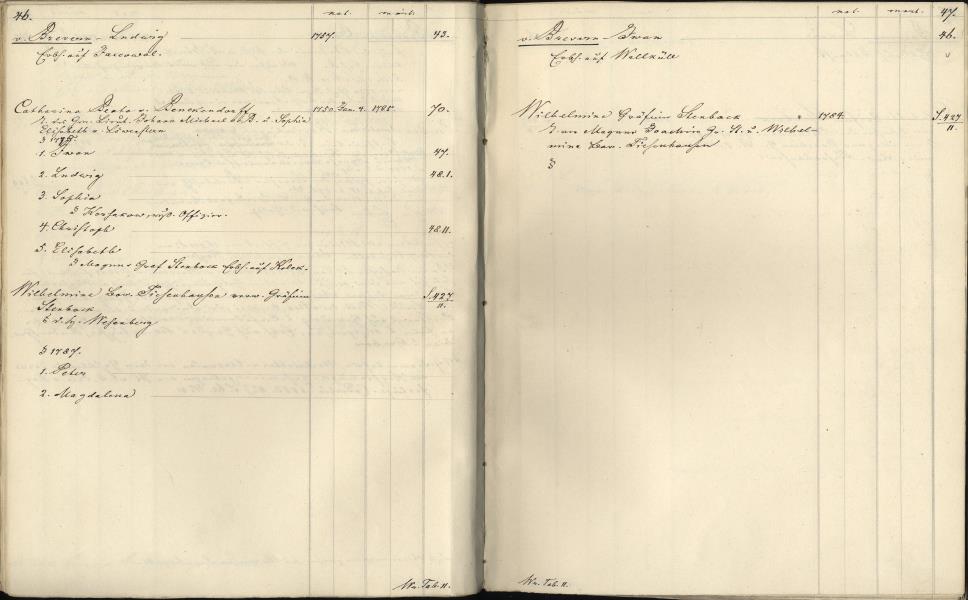 46.
nat. mort.
v. Brevern - Ludwig 1757. 43.
Erbh. auf
Catharina Beata v. Benckendorff 1750. Jan. 4. 1785. 70.
T. des Gen. Lieut. Johann Michael v. B. u. Sophia
Elisabeth v. Löwenstern
1. Iwan 47.
2. Ludwig 48.I.
3. Sophia
Korsakow russ. Offizier.
4. Christoph 48.II.
5. Elisabeth
Magnus Graf Stenbock Erbh. auf Kolck.
Wilhelmine Bar. Tiesenhausen verw. Gräfin S. 427
Stenbock II.
Wesenberg
1787.
1. Peter
2. Magdalena
Wr. Tab. II.
nat. mort. 47.
v. Brevern Iwan 46.
Erbh. auf Wallküll
Wilhelmine Gräfin Stenbock 1784. S. 427
T. von Magnus Joachim Gr. St. u. Wilhel- II.
mine Bar. Tiesenhausen
Wr. Tab. II.